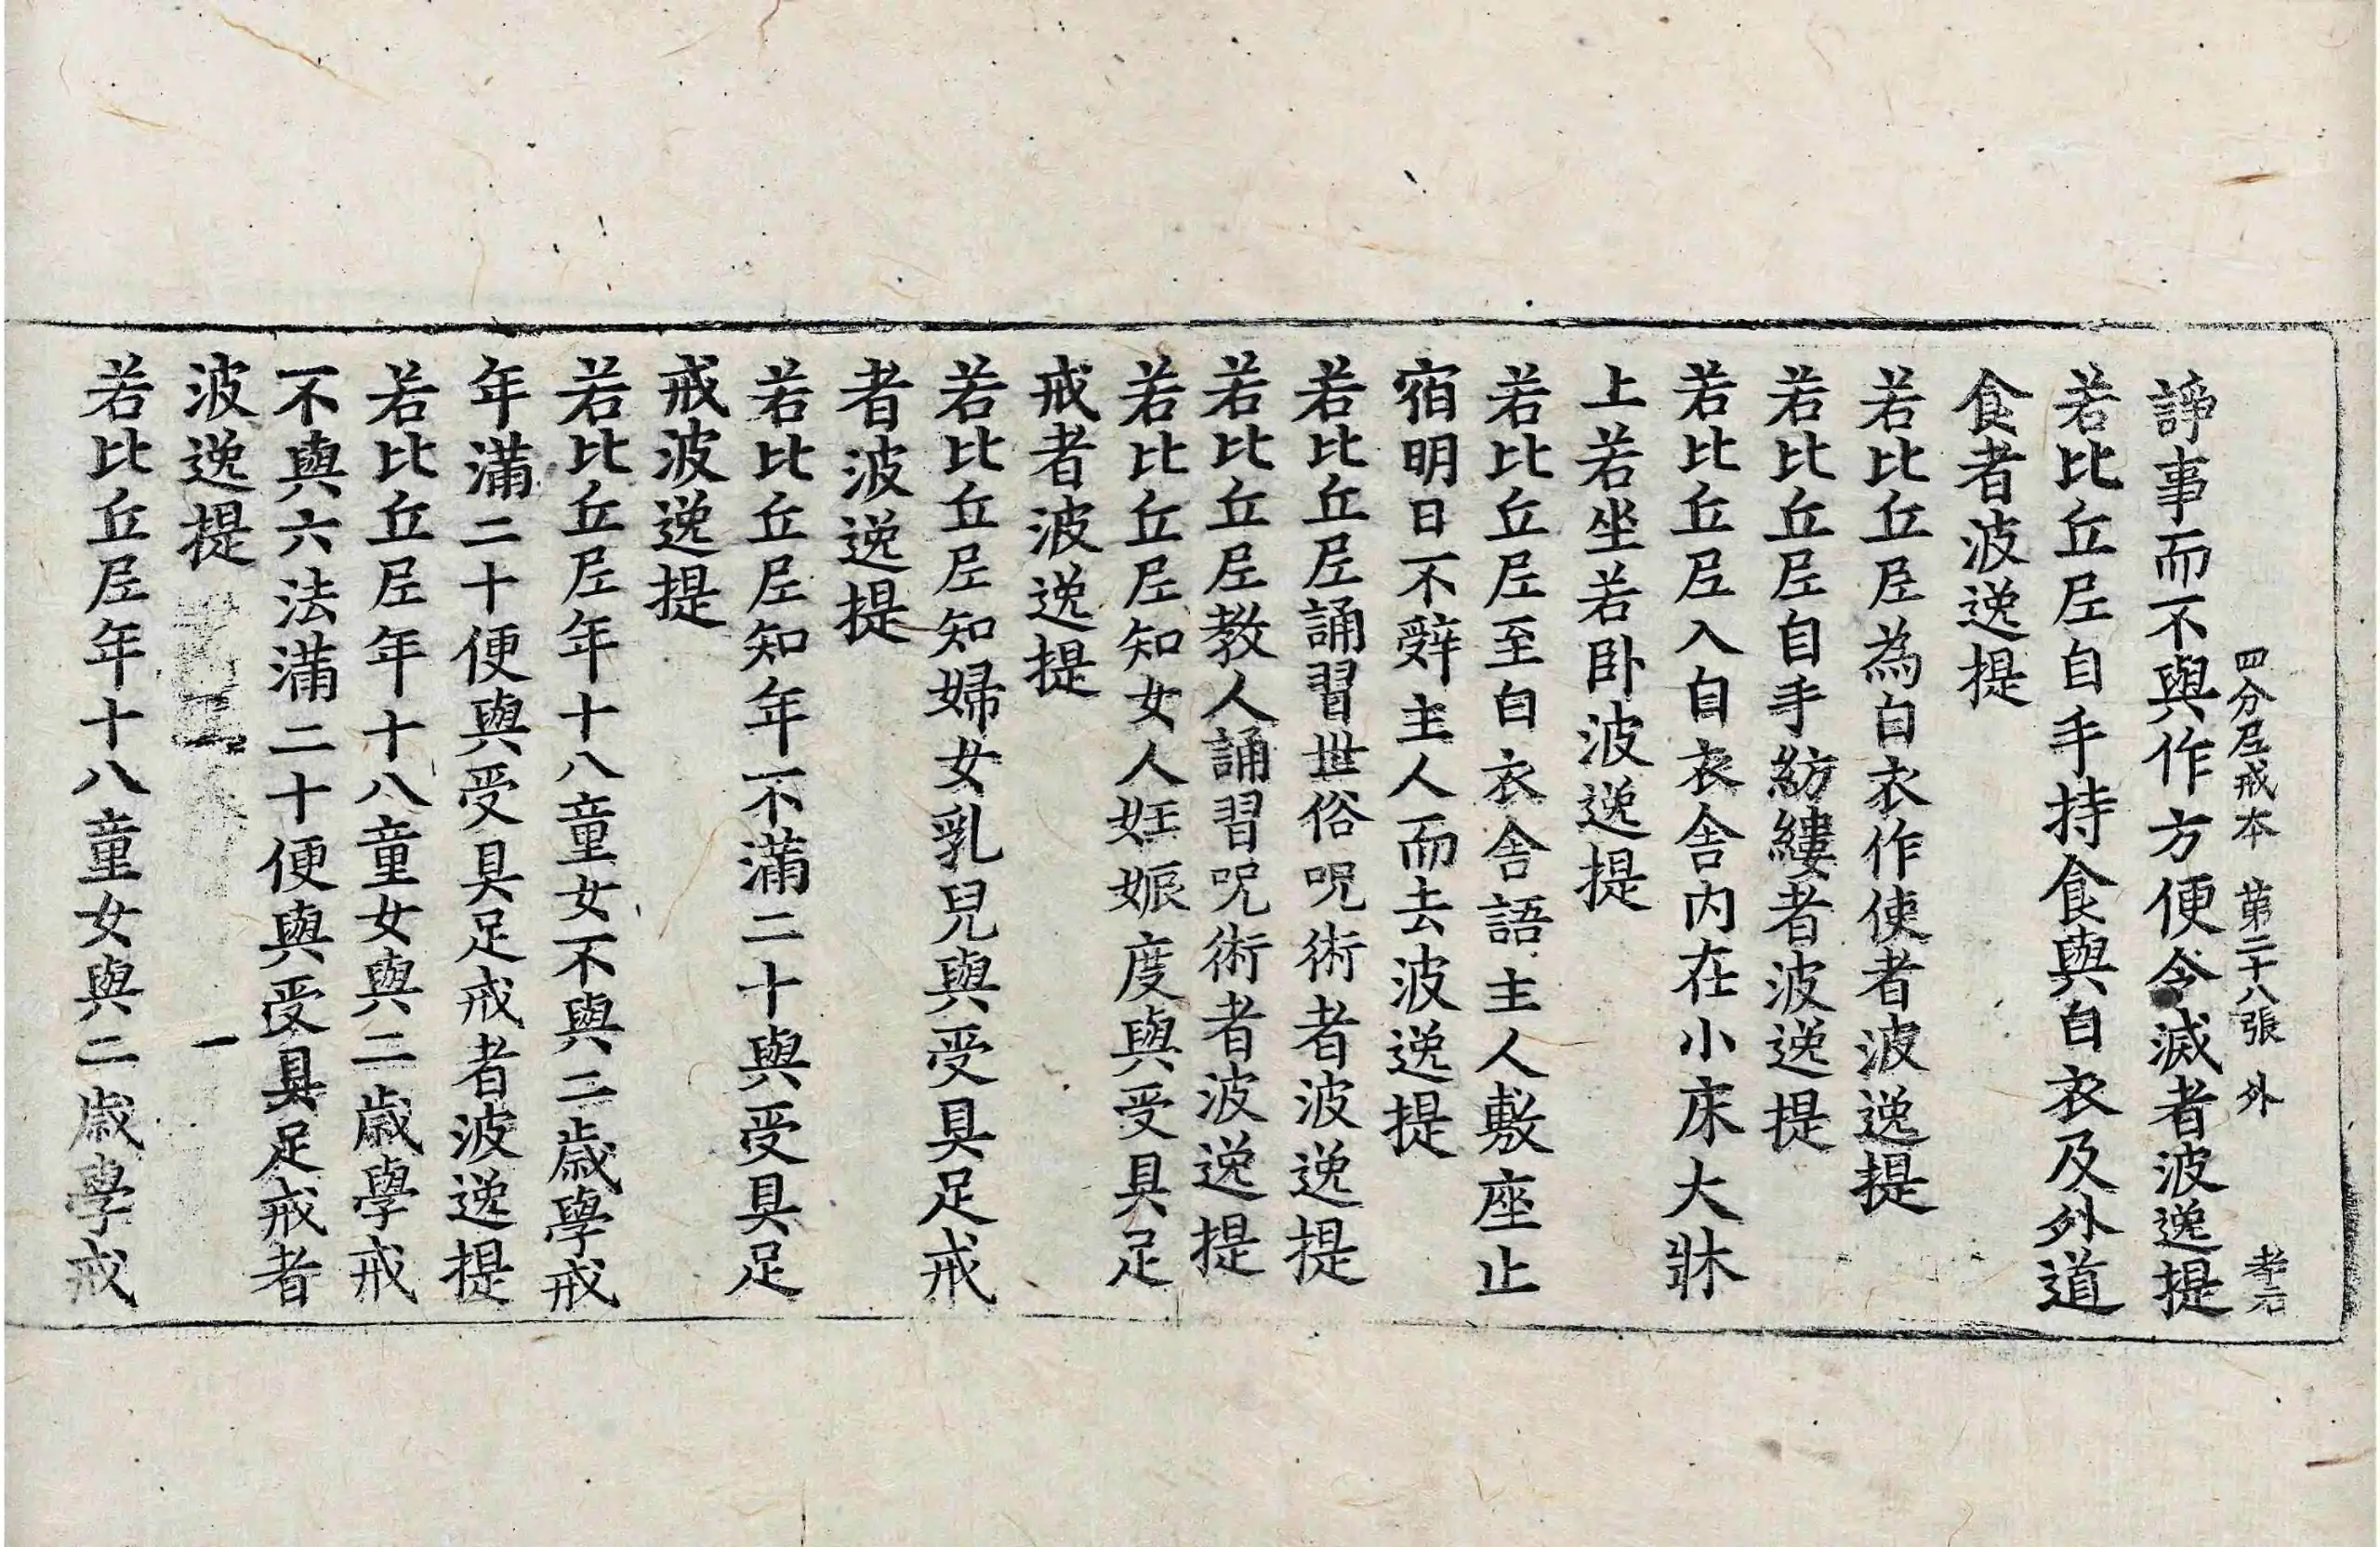 四分尼戒本 第二十八張 外 孝石
諍事而不與作方便令滅者波逸提
若比丘尼自手持食與白衣及外道
食者波逸提
若比丘尼為白衣作使者波逸提
若比丘尼自手紡縷者波逸提
若比丘尼入白衣舍内在小床大牀
上若坐若卧波逸提
若比丘尼至白衣舍語主人敷座止
宿明日不辤主人而去波逸提
若比丘尼誦習世俗呪術者波逸提
若比丘尼教人誦習呪術者波逸提
若比丘尼知女人妊娠度與受具足
戒者波逸提
若比丘尼知婦女乳兒與受具足戒
者波逸提
若比丘尼知年不滿二十與受具足
戒波逸提
若比丘尼年十八童女不與二歲學戒
年滿二十便與受具足戒者波逸提
若比丘尼年十八童女與二歲學戒
不與六法滿二十便與受具足戒者
波逸提
若比丘尼年十八童女與二歲學戒